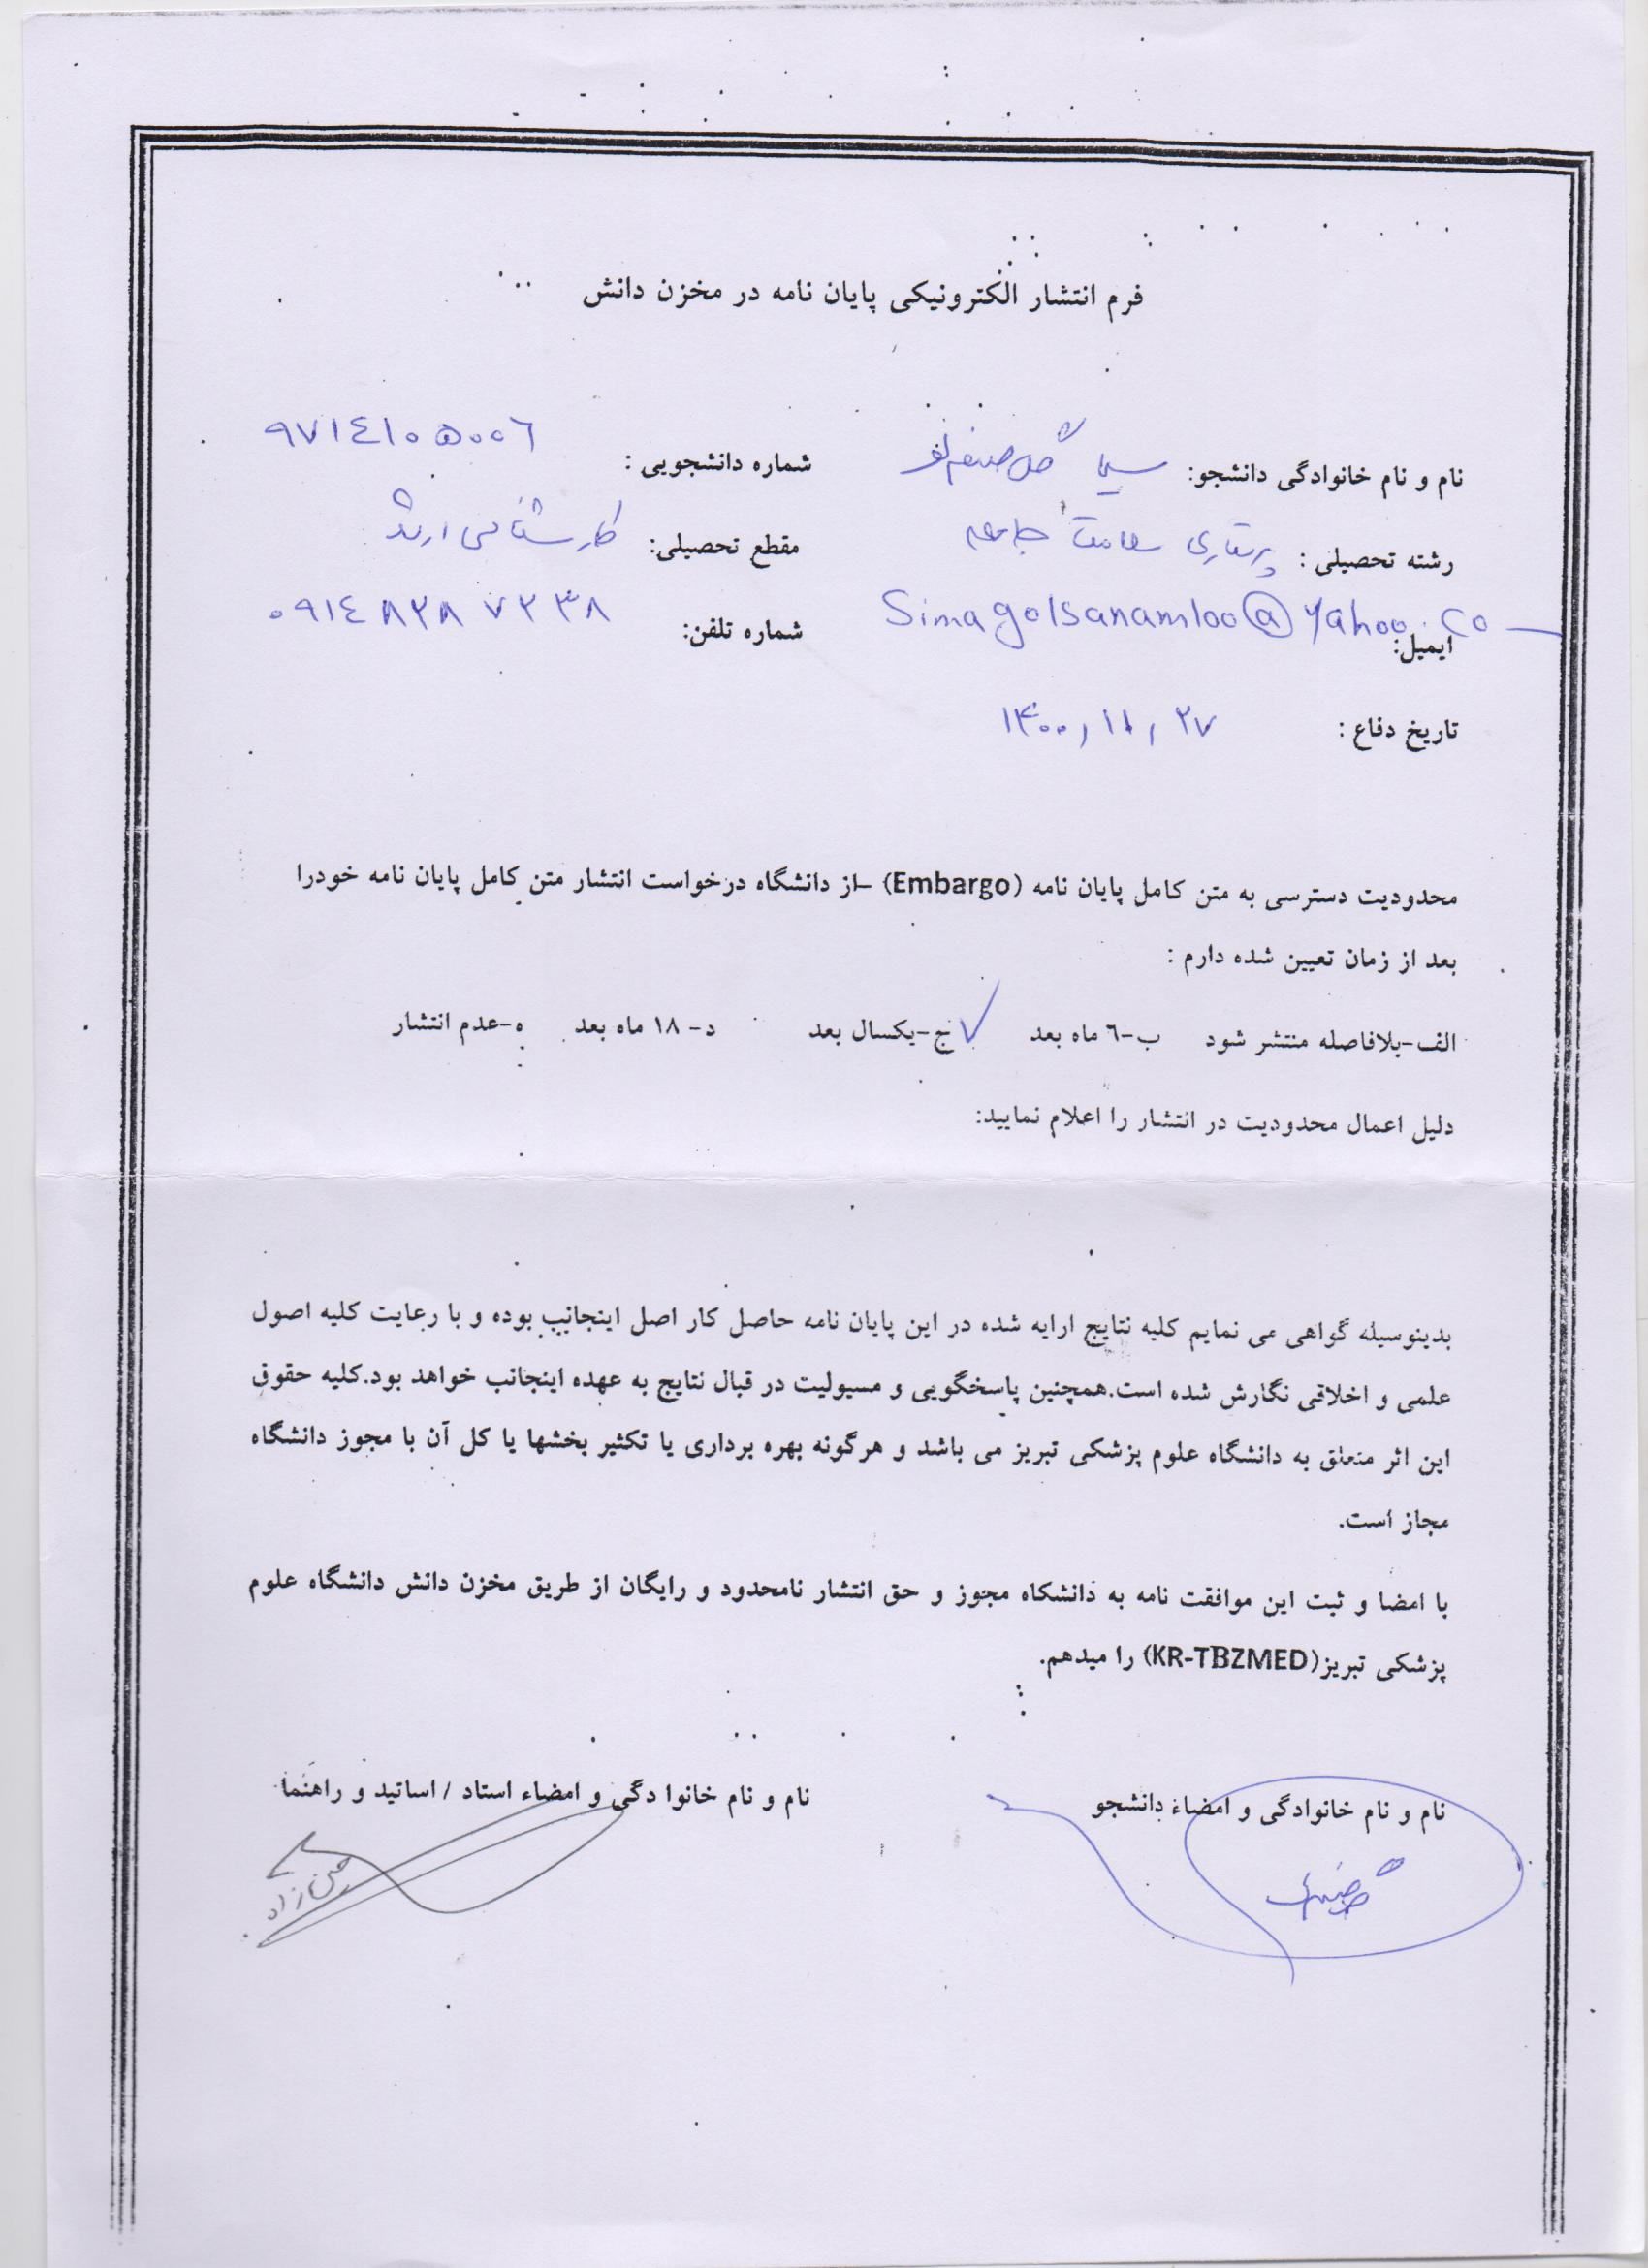 فرم انتشار الکترونیکی پایان نامه در مخزن دانش
نام و نام خانوادگی دانشجو: سیما گل صنم لو شماره دانشجویی : ۹۷۱٤۱۰۵۰۰٦
رشته تحصیلی : پرستاری سلامت جامعه مقطع تحصیلی: کارشناسی ارشد
ایمیل: Simagolsanamloo@yahoo.co شماره تلفن: ۰۹۱٤۸۲۸۷۲۳۸
تاریخ دفاع : ۱۴۰۰,۱۱,۲۷
محدودیت دسترسی به متن کامل پایان نامه (Embargo) –از دانشگاه درخواست انتشار متن کامل پایان نامه خودرا
بعد از زمان تعیین شده دارم :
الف-بلافاصله منتشر شود ب-٦ ماه بعد ✓ ج-یکسال بعد د- ۱۸ ماه بعد ه-عدم انتشار
دلیل اعمال محدودیت در انتشار را اعلام نمایید:
بدینوسیله گواهی می نمایم کلیه نتایج ارایه شده در این پایان نامه حاصل کار اصل اینجانب بوده و با رعایت کلیه اصول
علمی و اخلاقی نگارش شده است.همچنین پاسخگویی و مسیولیت در قبال نتایج به عهده اینجانب خواهد بود.کلیه حقوق
این اثر متعلق به دانشگاه علوم پزشکی تبریز می باشد و هرگونه بهره برداری یا تکثیر بخشها یا کل آن با مجوز دانشگاه
مجاز است.
با امضا و ثبت این موافقت نامه به دانشکاه مجوز و حق انتشار نامحدود و رایگان از طریق مخزن دانش دانشگاه علوم
پزشکی تبریز(KR-TBZMED) را میدهم.
نام و نام خانوادگی و امضاء دانشجو نام و نام خانوا دگی و امضاء استاد / اساتید و راهنما